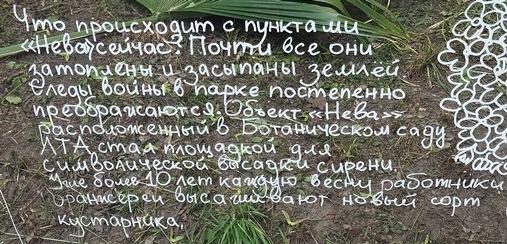 Что происходит с пунктами
«Нева» сейчас? Почти все они
затоплены и засыпаны землёй.
Следы войны в парке постепенно
преображаются. Объект «Нева»
расположенный в Ботаническом саду
ЛТА, стал площадкой для
символической высадки сирени.
Уже более 10 лет каждую весну работники
оранжереи высаживают новый сорт
кустарника,